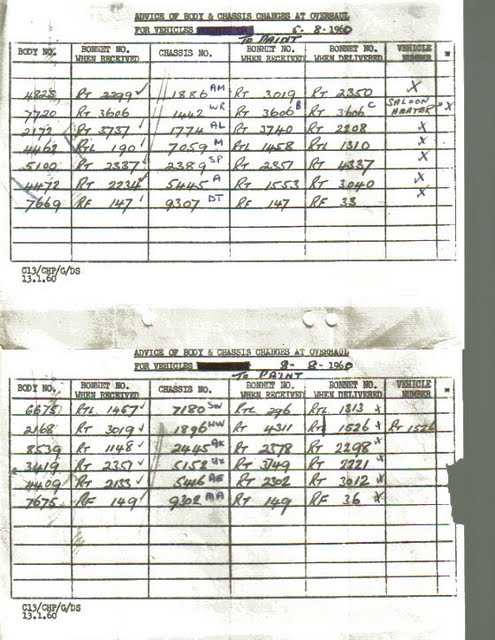 ADVICE OF BODY & CHASSIS CHANGES AT OVERHAUL
FOR VEHICLES 5-8-1960
TO PAINT
BODY NO. BONNET NO. WHEN RECEIVED CHASSIS NO. BONNET NO. WHEN RECEIVED BONNET NO. WHEN DELIVERED VEHICLE NUMBER *
4825 RT 2299 ✓ 1886 AM RT 3019 RT 2350 X
7720 RT 3606 1442 WR RT 3606 B RT 3606 C SALOON HEATER X
2172 RT 3737 ✓ 1774 AL RT 3740 RT 2208 X
4462 RTL 190 ✓ 7059 M RTL 1458 RTL 1310 X
5100 RT 2337 ✓ 2389 SP RT 2351 RT 4337 X
4472 RT 2234 ✓ 5445 A RT 1553 RT 3040 X
7669 RF 147 ✓ 9307 DT RF 147 RF 33 X
C13/CHP/G/DS
13.1.60
ADVICE OF BODY & CHASSIS CHANGES AT OVERHAUL
FOR VEHICLES 8-8-1960
TO PAINT
BODY NO. BONNET NO. WHEN RECEIVED CHASSIS NO. BONNET NO. WHEN RECEIVED BONNET NO. WHEN DELIVERED VEHICLE NUMBER *
6675 RTL 1457 ✓ 7180 SW RTL 296 RTL 1313 X
2168 RT 3019 ✓ 1896 HW RT 4311 RT 1526 X RT 1526
8539 RT 1148 ✓ 2445 AK RT 2378 RT 2298 X
3419 RT 2351 ✓ 5152 UX RT 3149 RT 2221 X
4409 RT 2133 ✓ 5446 AE RT 2302 RT 3012 X
7675 RF 149 ✓ 9302 MA RT 149 RF 36 X
C13/CHP/G/DS
13.1.60